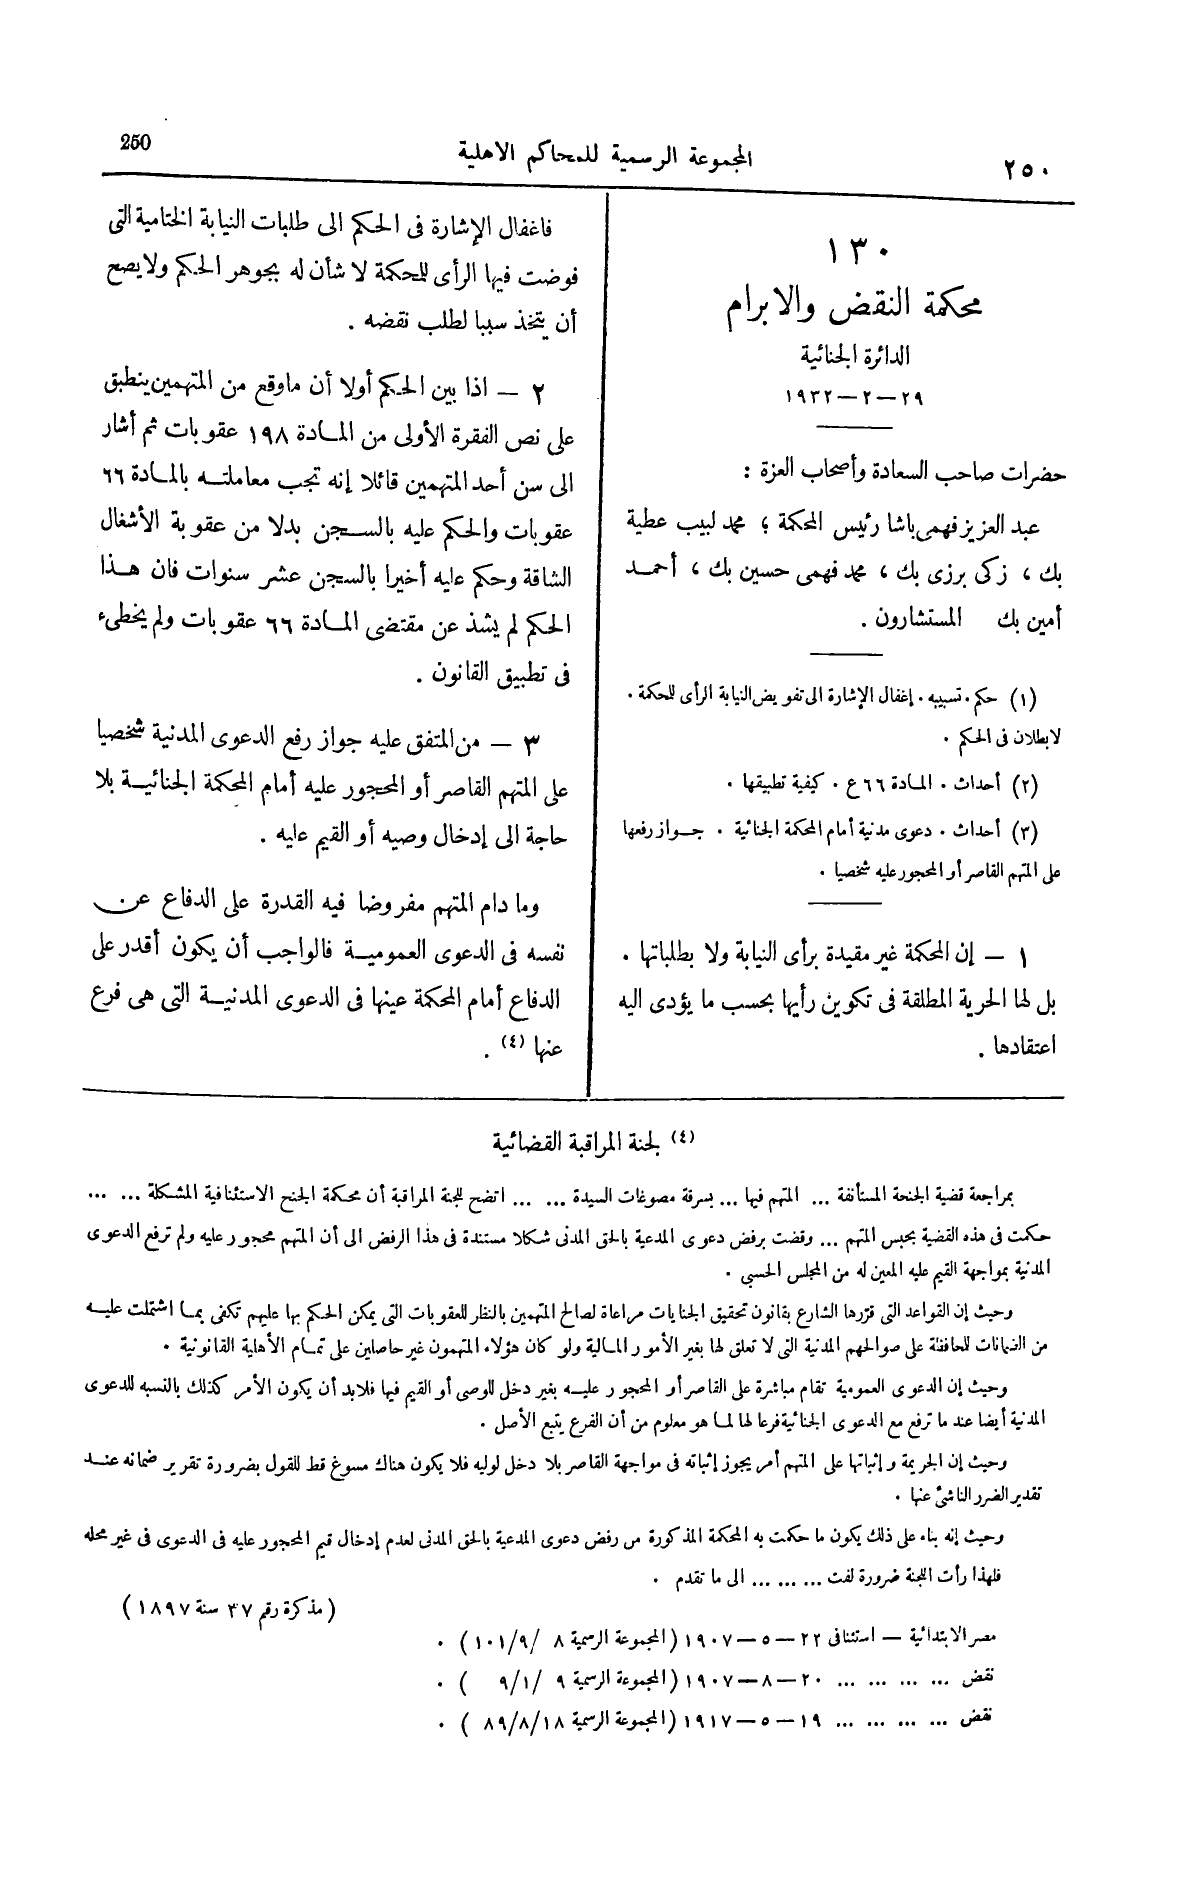 ٢٥٠
المجموعة الرسمية للمحاكم الاهلية
250
١٣٠
محكمة النقض والابرام
الدائرة الجنائية
٢٩ – ٢ – ١٩٣٢
حضرات صاحب السعادة وأصحاب العزة :
عبد العزيز فهمى باشا رئيس المحكمة ؛ محمد لبيب عطية
بك ، زكى برزى بك ، محمد فهمى حسين بك ، أحمد
أمين بك المستشارون .
(١) حكم . تسبيبه . إغفال الإشارة الى تفويض النيابة الرأى للمحكمة .
لا بطلان فى الحكم .
(٢) أحداث . المادة ٦٦ ع . كيفية تطبيقها .
(٣) أحداث . دعوى مدنية أمام المحكمة الجنائية . جواز رفعها
على المتهم القاصر أو المحجور عليه شخصيا .
١ – إن المحكمة غير مقيدة برأى النيابة ولا بطلباتها .
بل لها الحرية المطلقة فى تكوين رأيها بحسب ما يؤدى اليه
اعتقادها .
فاغفال الإشارة فى الحكم الى طلبات النيابة الختامية التى
فوضت فيها الرأى للمحكمة لا شأن له بجوهر الحكم ولا يصح
أن يتخذ سببا لطلب نقضه .
٢ – اذا بين الحكم أولا أن ما وقع من المتهمين ينطبق
على نص الفقرة الأولى من المادة ١٩٨ عقوبات ثم أشار
الى سن أحد المتهمين قائلا إنه تجب معاملته بالمادة ٦٦
عقوبات والحكم عليه بالسجن بدلا من عقوبة الأشغال
الشاقة وحكم عليه أخيرا بالسجن عشر سنوات فان هذا
الحكم لم يشذ عن مقتضى المادة ٦٦ عقوبات ولم يخطىء
فى تطبيق القانون .
٣ – من المتفق عليه جواز رفع الدعوى المدنية شخصيا
على المتهم القاصر أو المحجور عليه أمام المحكمة الجنائية بلا
حاجة الى إدخال وصيه أو القيم عليه .
وما دام المتهم مفروضا فيه القدرة على الدفاع عن
نفسه فى الدعوى العمومية فالواجب أن يكون أقدر على
الدفاع أمام المحكمة عينها فى الدعوى المدنية التى هى فرع
عنها (٤) .
(٤) لجنة المراقبة القضائية
بمراجعة قضية الجنحة المستأنفة ... المتهم فيها ... بسرقة مصوغات السيدة ... ... اتضح للجنة المراقبة أن محكمة الجنح الاستئنافية المشكلة ... ...
حكمت فى هذه القضية بحبس المتهم ... وقضت برفض دعوى المدعية بالحق المدنى شكلا مستندة فى هذا الرفض الى أن المتهم محجور عليه ولم ترفع الدعوى
المدنية بمواجهة القيم عليه المعين له من المجلس الحسبى .
وحيث إن القواعد التى قررها الشارع بقانون تحقيق الجنايات مراعاة لصالح المتهمين بالنظار للعقوبات التى يمكن الحكم بها عليهم تكفى بما اشتملت عليه
من الضمانات للحافظة على صوالحهم المدنية التى لا تعلق لها بغير الأمور المالية ولو كان هؤلاء المتهمون غير حاصلين على تمام الأهلية القانونية .
وحيث إن الدعوى العمومية تقام مباشرة على القاصر أو المحجور عليه بغير دخل للوصى أو القيم فيها فلابد أن يكون الأمر كذلك بالنسبه للدعوى
المدنية أيضا عند ما ترفع مع الدعوى الجنائية فرعا لها لما هو معلوم من أن الفرع يتبع الأصل .
وحيث إن الجريمة وإثباتها على المتهم أمر يجوز إثباته فى مواجهة القاصر بلا دخل لوليه فلا يكون هناك مسوغ قط للقول بضرورة تقرير ضمانه عند
تقدير الضرر الناشئ عنها .
وحيث إنه بناء على ذلك يكون ما حكمت به المحكمة المذكورة من رفض دعوى المدعية بالحق المدنى لعدم إدخال قيم المحجور عليه فى الدعوى فى غير محله
فلهذا رأت اللجنة ضرورة لفت ... ... ... الى ما تقدم .
(مذكرة رقم ٣٧ سنة ١٨٩٧)
مصر الابتدائية – استئنافى ٢٢ – ٥ – ١٩٠٧ (المجموعة الرسمية ٨ /٩/١٠١) .
نقض ... ... ... ... ٢٠ – ٨ – ١٩٠٧ (المجموعة الرسمية ٩ /١/٩ ) .
نقض ... ... ... ... ١٩ – ٥ – ١٩١٧ (المجموعة الرسمية ١٨/٨/٨٩ ) .